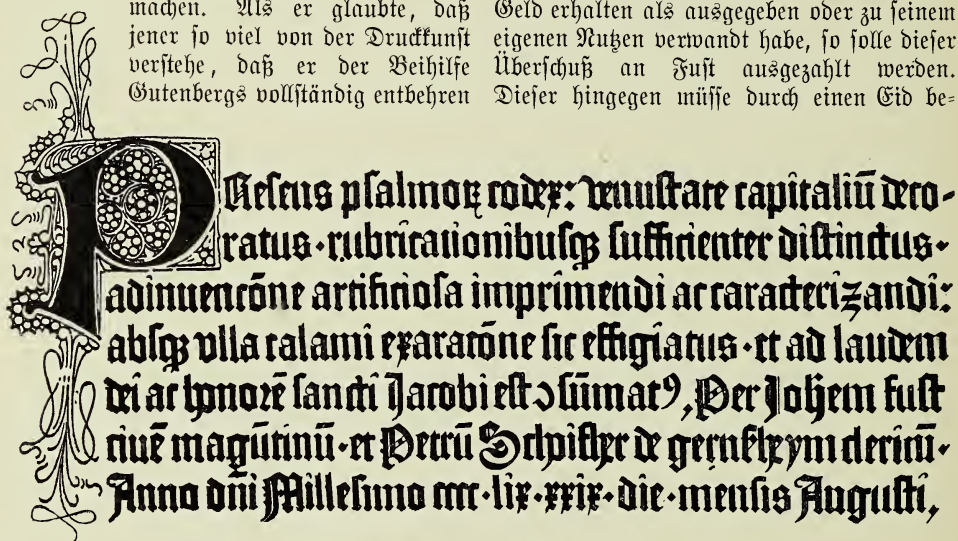 machen. Als er glaubte, daß
jener ſo viel von der Druckkunſt
verſtehe, daß er der Beihilfe
Gutenbergs vollſtändig entbehren
Geld erhalten als ausgegeben oder zu ſeinem
eigenen Nutzen verwandt habe, ſo ſolle dieſer
Überſchuß an Fuſt ausgezahlt werden.
Dieſer hingegen müſſe durch einen Eid be-
PReſens pſalmoꝝ codex: venuſtate capitaliū deco-
ratus·rubricationibuſqꝫ ſufficienter diſtinctus·
adinuencōne artificioſa imprimendi ac caracterizandi:
abſqꝫ vlla calami exaracōne ſic effigiatus·et ad laudem
dei ac honorē ſancti Jacobi eſt ɔſūmatꝰ, Per Johem fuſt
ciuē magūtinū·et Petrū Schoifher de gernſheym clericū·
Anno dn̄i Milleſimo cccc·lix·xxix·die·menſis Auguſti,